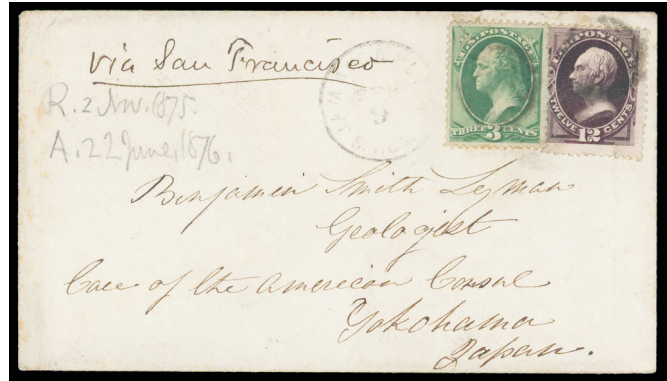 via San Francisco
R. 2 Nov. 1875.
A. 22 June, 1876.
U.S. POSTAGE
THREE 3 CENTS
U.S. POSTAGE
TWELVE 12 CENTS
Benjamin Smith Lyman
Geologist
Care of the American Consul
Yokohama
Japan.